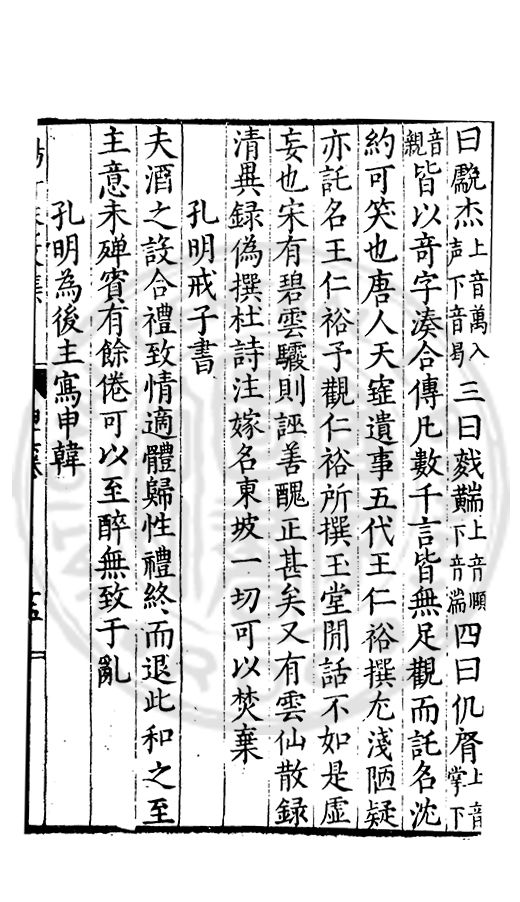 曰䫥杰上音萬入声下音曷三曰㦸䵎上音順下音湍四曰仉脀上音掌下
音覶皆以竒字湊合傳凢數千言皆無足觀而託名沈
約可笑也唐人天寳遺事五代王仁裕撰尤淺陋疑
亦託名王仁裕予觀仁裕所撰玉堂閒話不如是虛
妄也宋有碧雲騢則誣善醜正甚矣又有雲仙散録
清異録偽撰杜詩注嫁名東坡一切可以焚棄
孔明戒子書
夫酒之設合禮致情適體歸性禮終而退此和之至
主意未殫賓有餘倦可以至醉無致于亂
孔明為後主寫申韓